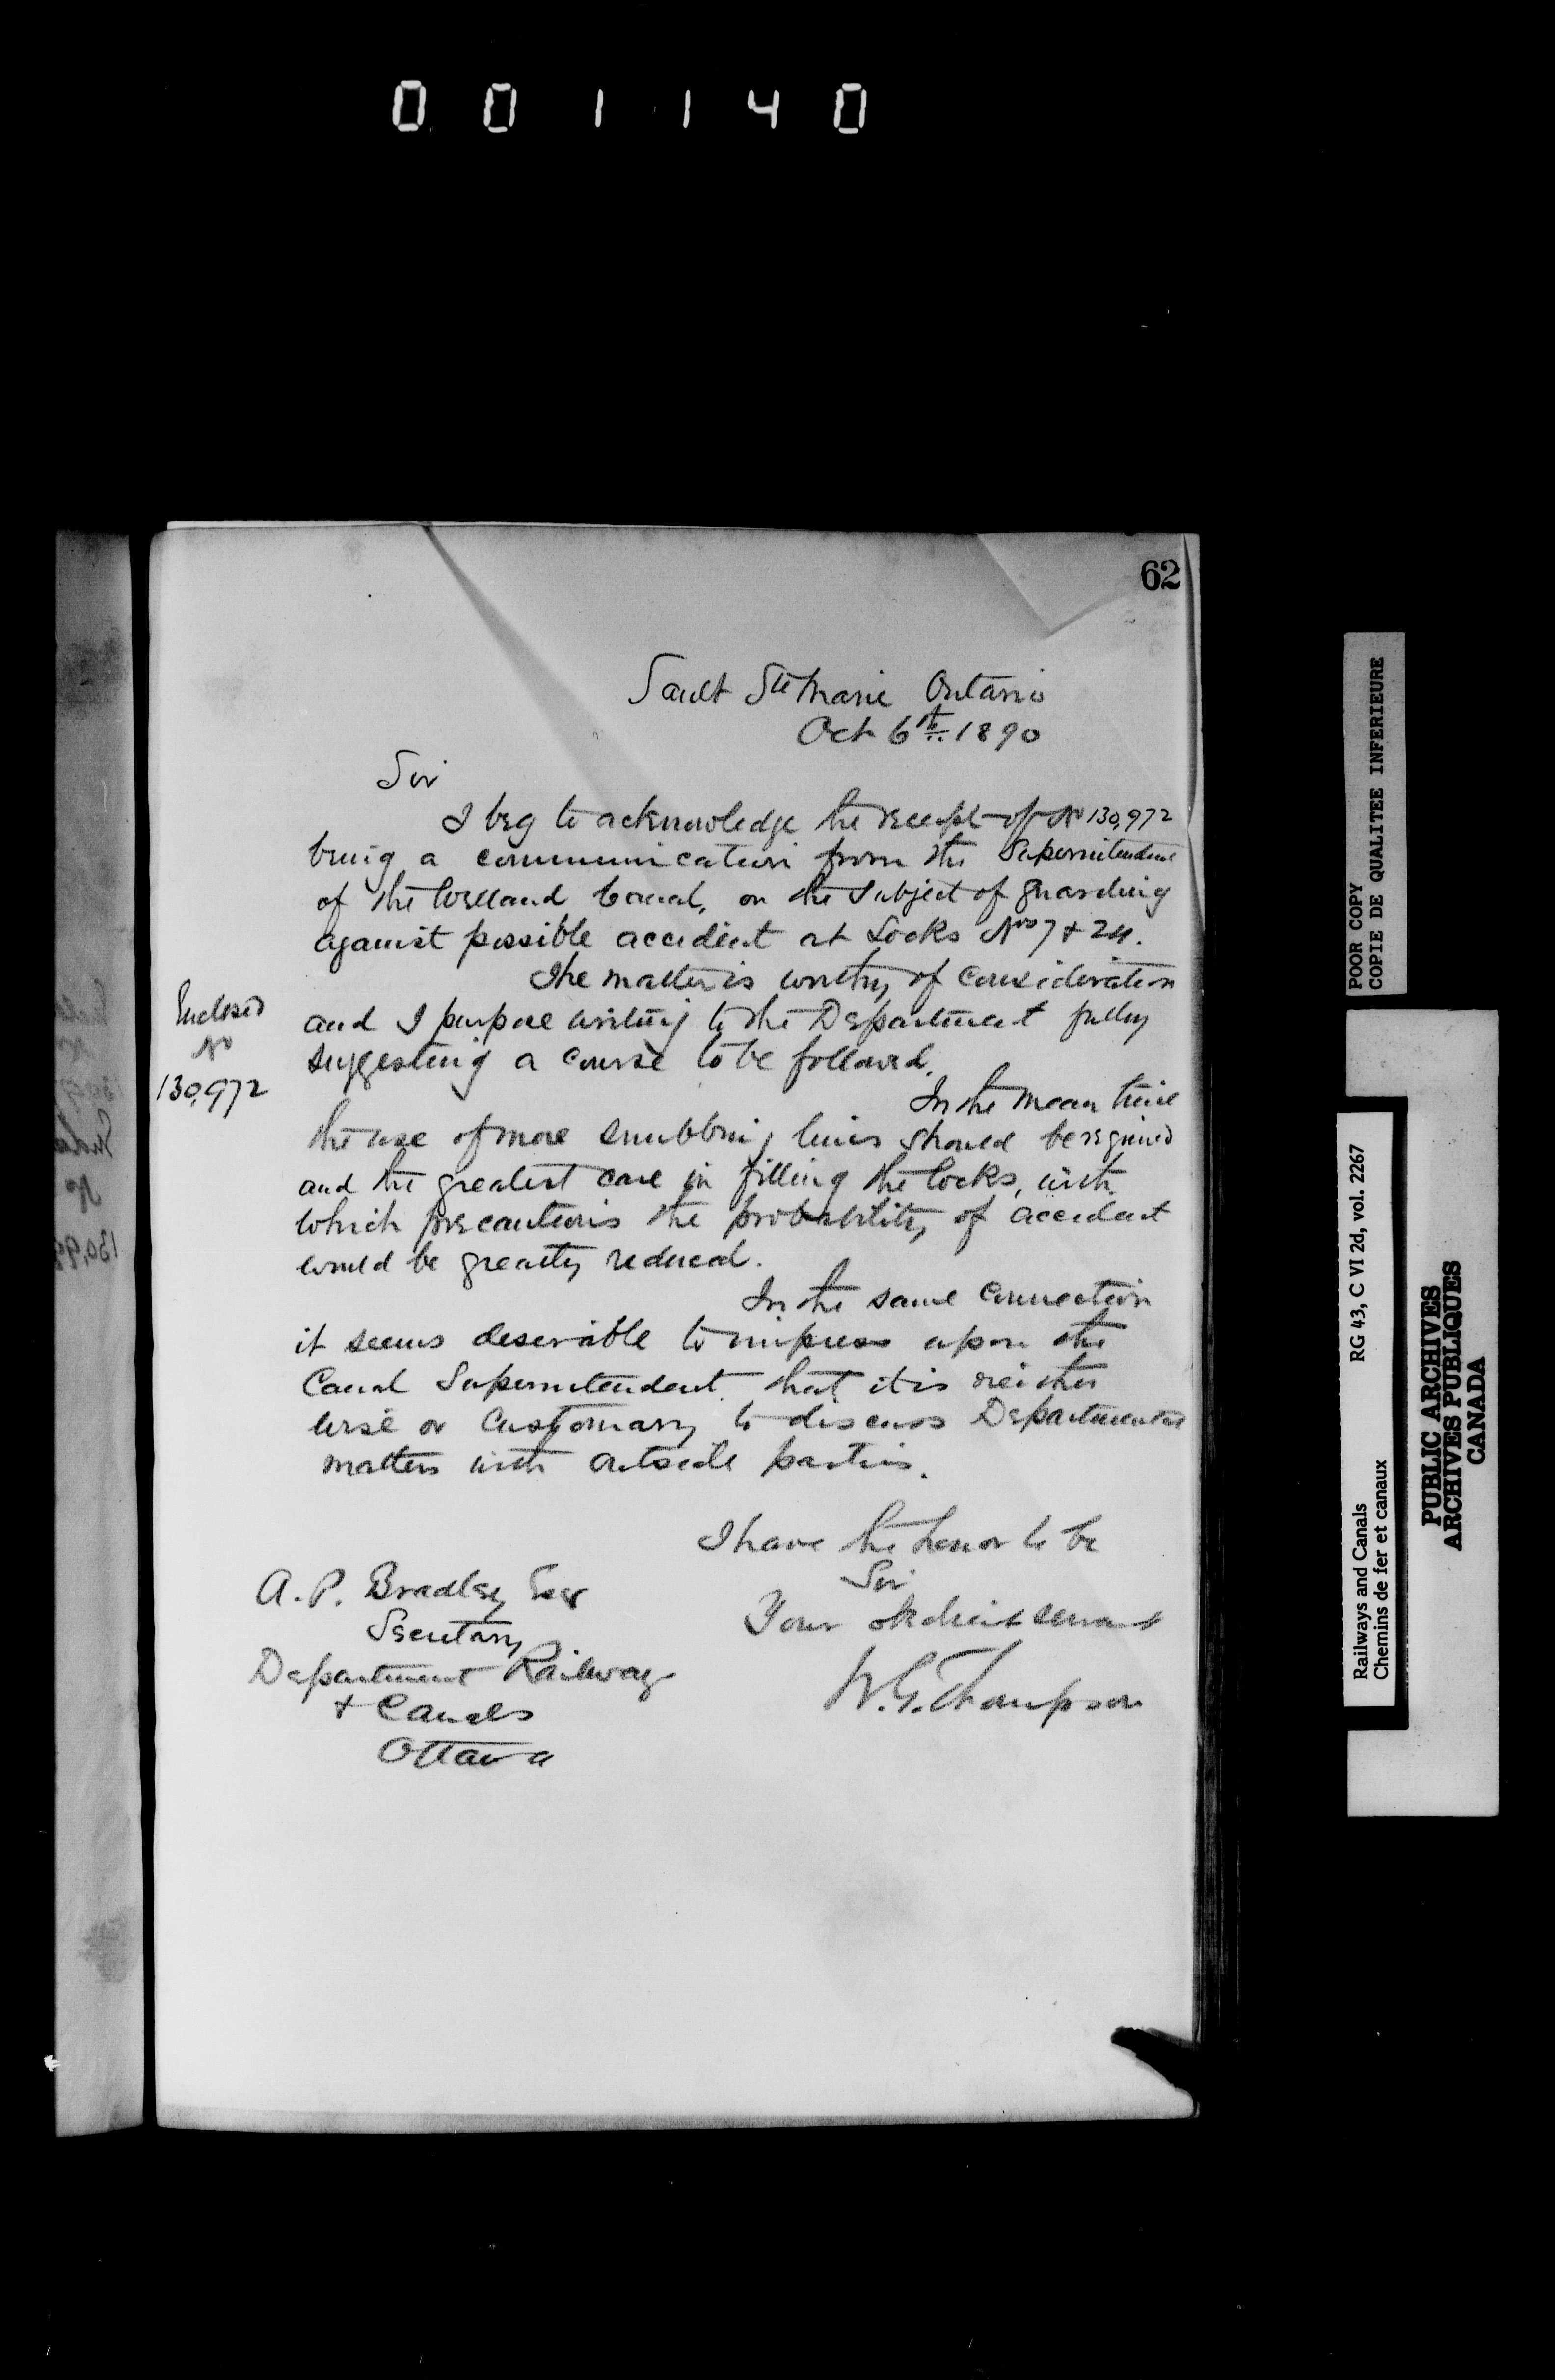 001140
62
Sault Ste Marie Ontario
Oct 6th 1890
Sir
I beg to acknowledge the receipt of No 130,972
being a communication from the Superintendent
of the Welland Canal, on the subject of guarding
against possible accident at Locks Nos 7 & 24.
The matter is worthy of consideration
and I purpose writing to the Department fully
suggesting a course to be followed.
Enclosed
No
130,972
In the mean time
the use of more snubbing lines should be required
and the greatest care in filling the locks, with
which precautions the probability of accident
would be greatly reduced.
In the same connection
it seems deserable to impress upon the
Canal Superintendent that it is neither
wise or customary to discuss Departmental
matters with outside parties.
I have the honor to be
Sir
Your obedient servant
W.G. Thompson
A. P. Bradley Esqr
Secretary
Department Railways
& Canals
Ottawa
POOR COPY
COPIE DE QUALITEE INFERIEURE
Railways and Canals RG 43, C VI 2d, vol. 2267
Chemins de fer et canaux
PUBLIC ARCHIVES
ARCHIVES PUBLIQUES
CANADA